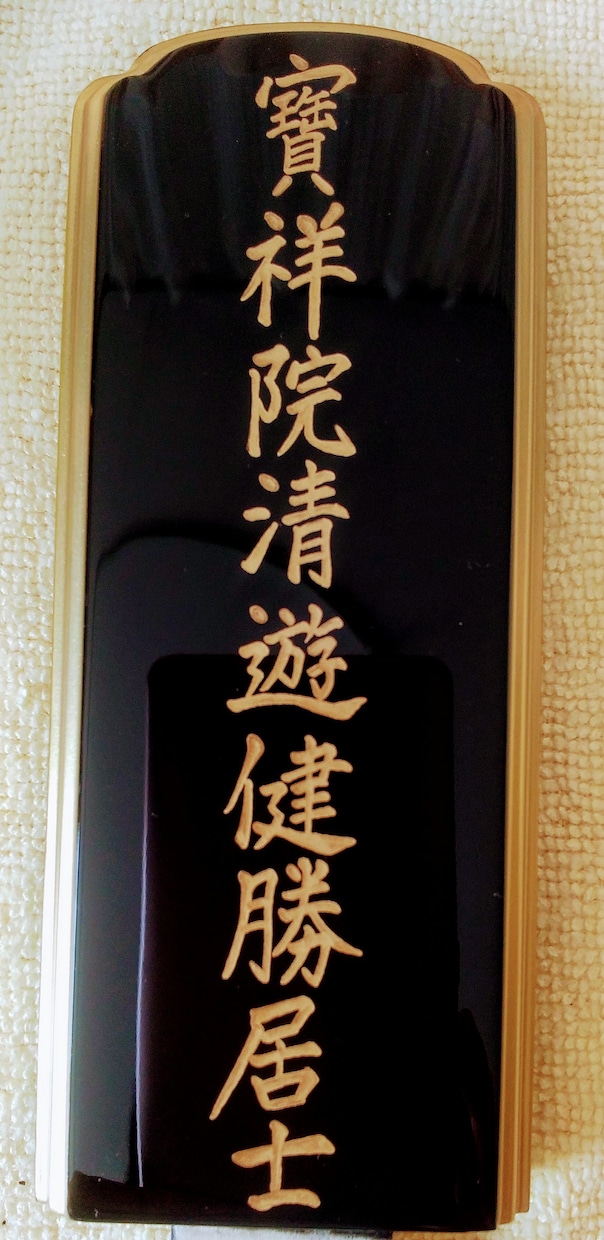 寶祥院清遊健勝居士